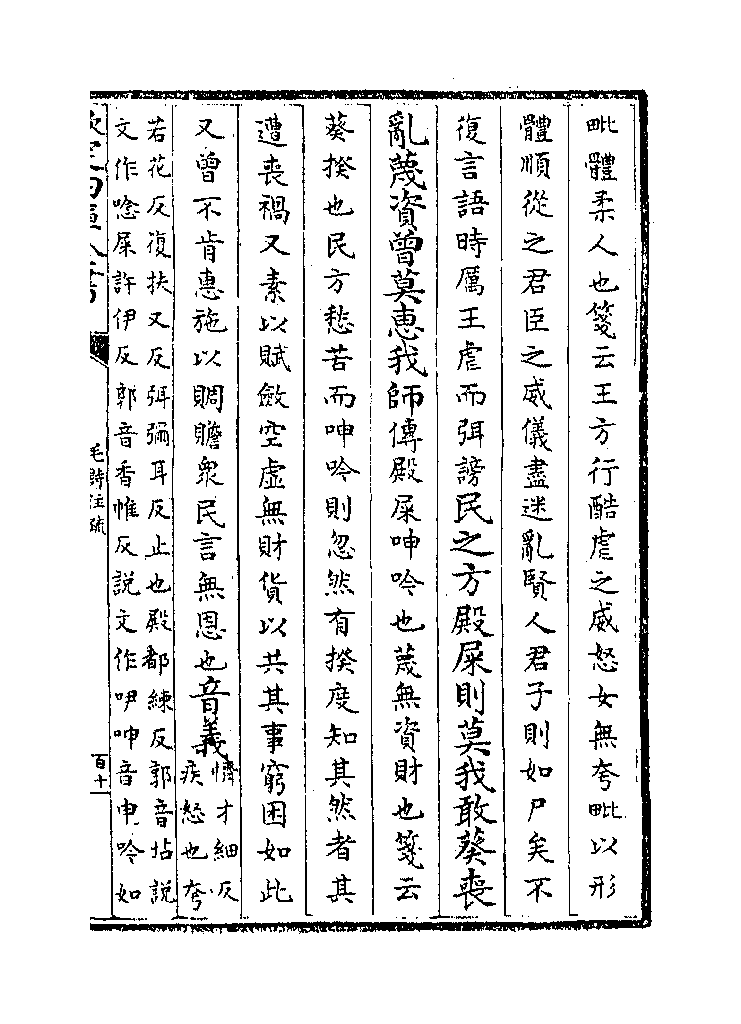 毗體柔人也箋云王方行酷虐之威怒女無夸毗以形
體順從之君臣之威儀盡迷亂賢人君子則如尸矣不
復言語時厲王虐而弭謗民之方殿屎則莫我敢葵喪
亂蔑資曾莫惠我師傳殿屎呻吟也蔑無資財也箋云
葵揆也民方愁苦而呻吟則忽然有揆度知其然者其
遭喪禍又素以賦斂空虛無財貨以共其事窮困如此
又曾不肯惠施以賙贍衆民言無恩也音義懠才細反
疾怒也夸
若花反復扶又反弭彌耳反止也殿都練反郭音坫說
文作唸屎許伊反郭音香惟反說文作吚呻音申吟如
欽定四庫全書
毛詩注疏
百十一